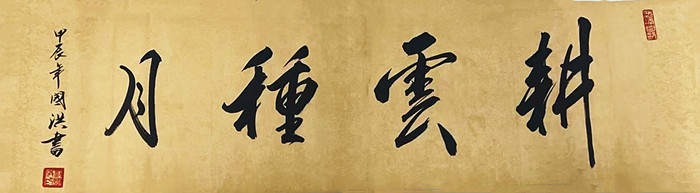 耕雲種月
甲辰年國洪書